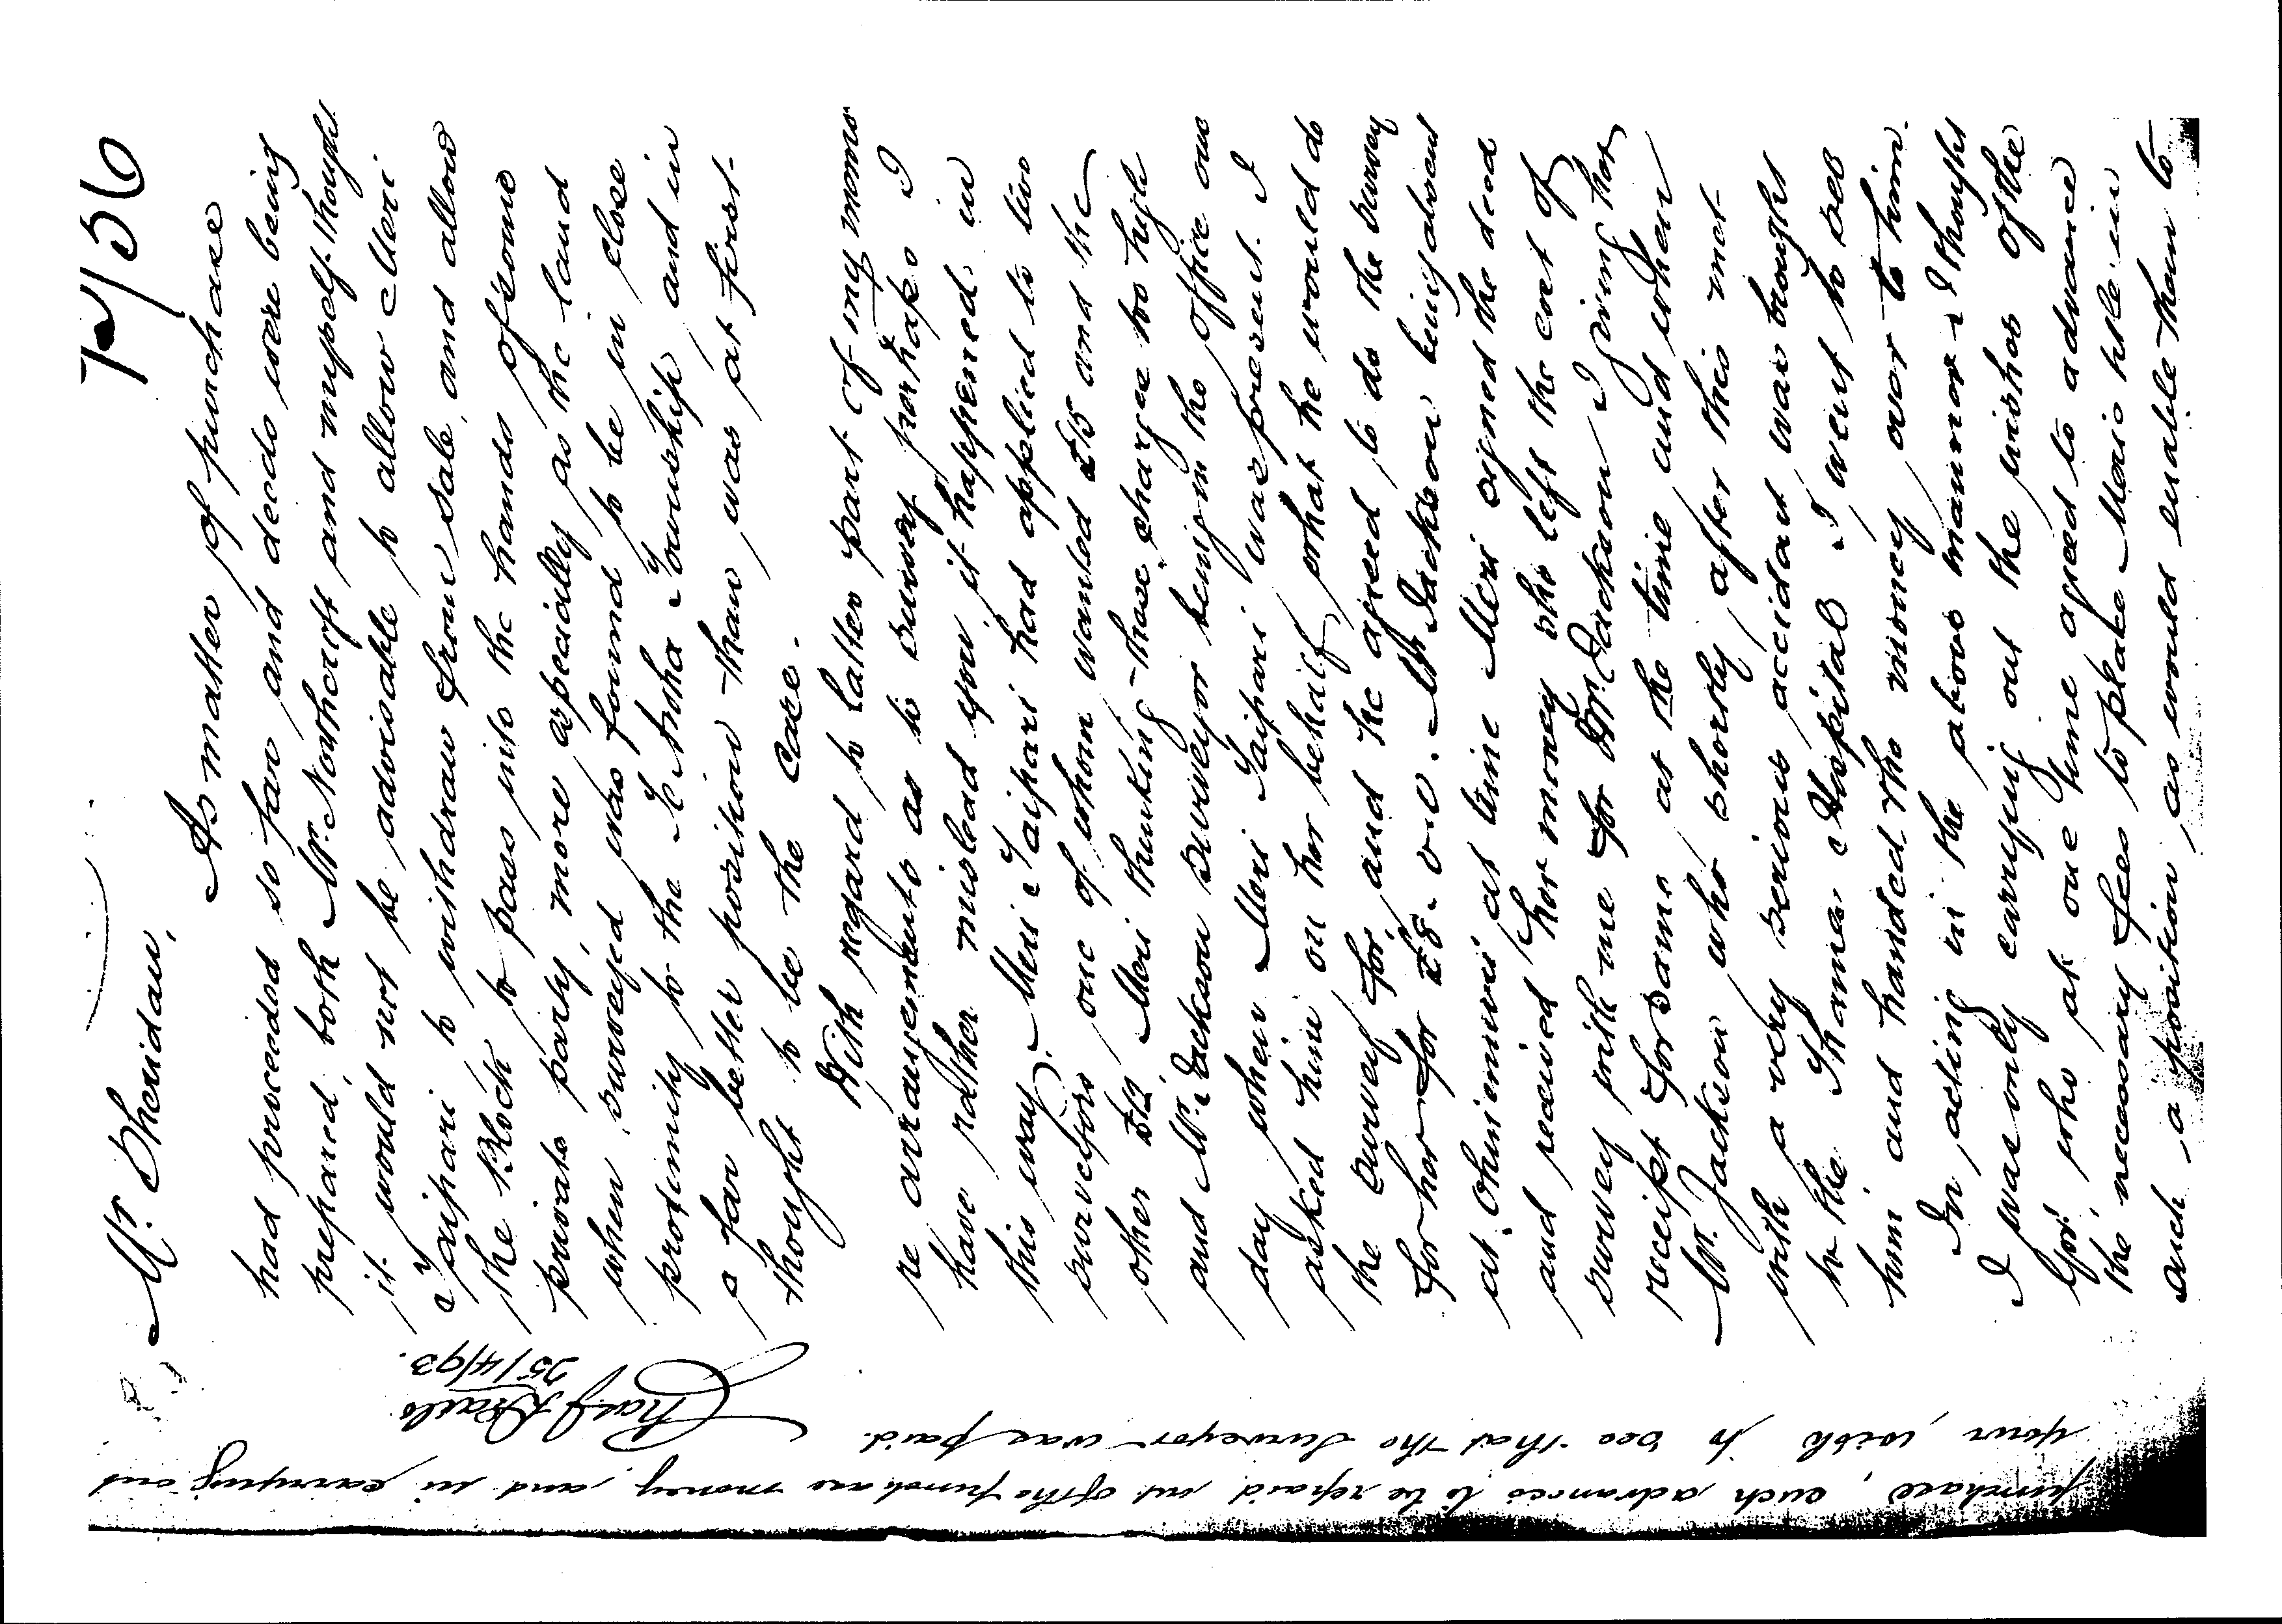 Mr. Sheridan,
As matter of purchase
had proceeded so far and deeds were being
prepared, both Mr. Northcroft and myself thought
it would not be advisable to allow Meri
Taipari to withdraw from sale, and allow
the Block to pass into the hands of some
private party, more especially as the land
when surveyed was found to be in close
proximity to the Te Aroha Township and in
a far better position than was at first
thought to be the case.
With regard to latter part of my memo
re arrangements as to survey perhaps I
have rather mislead you it happened in
this way. Meri Taipari had applied to two
surveyors one of whom wanted £15 and the
other £12, Meri thinking these charges too high
and Mr. Jackson surveyor being in the office one
day when Meri Taipari was present. I
asked him on her behalf what he would do
the survey for, and he agreed to do the survey
for her for £8. o.o. Mr. Jackson being absent
at Ohinemuri at time Meri signed the deed
and received her money she left the cost of
survey with me for Mr. Jackson I giving her
receipt for same at the time and when
Mr. Jackson who shortly after this met
with a very serious accident was brought
to the Thames Hospital I went to see
him and handed the money over to him.
In acting in the above manner I thought
I was only carrying out the wishes of the
Govt. who at one time agreed to advance
the necessary fees to place Maoris title in
such a position as would enable them to
purchase, such advances to be repaid out of the purchase money, and in carrying out
your wish to see that the Surveyor was paid.
25/4/93.